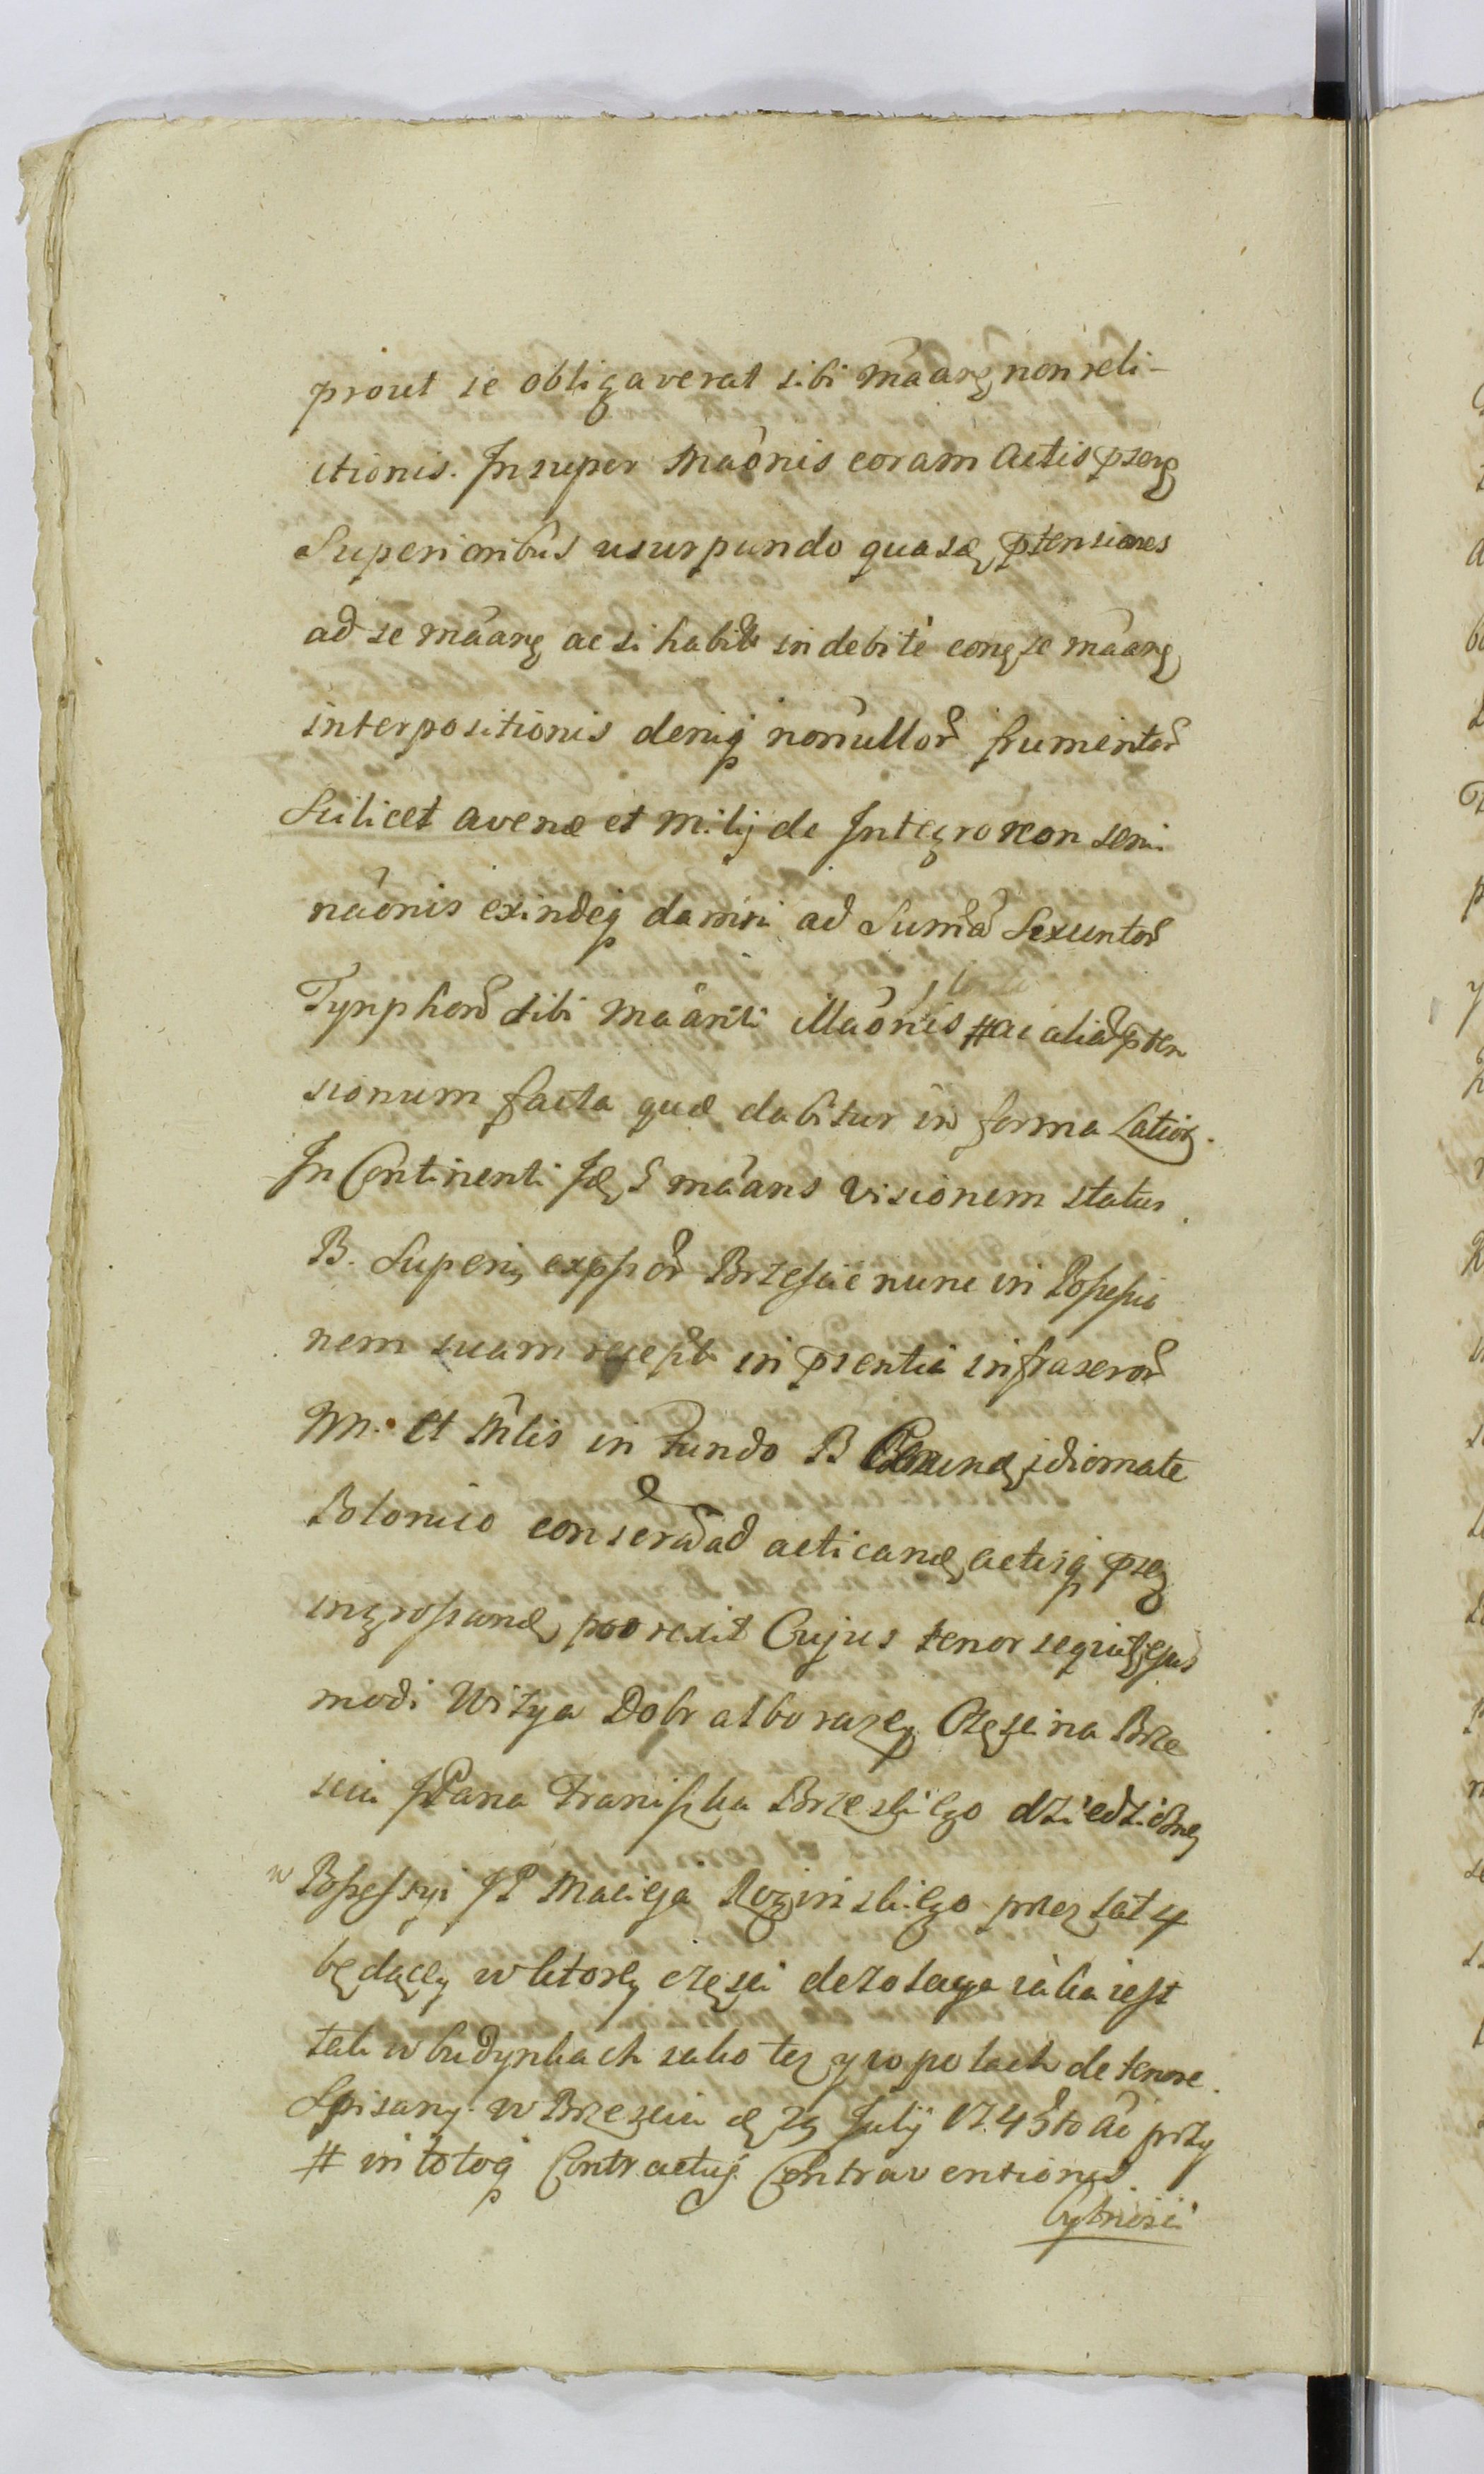 prout se obligaverat sibi mãang non reli-
ctionis. Insuper Mãonis coram Actis pseng
Superioribus usurpando quasd ptensiones
ad se mãang ac si habit indebite cong se mãang
interpositionis deniq nonnullor frumentor
Scilicet avenæ et milij de Integro non semi
nãonis exindeq damni ad Sumã Sexcentor
Tynphor sibi Mãanti illãonis # ac aliar pten
sionum facta quæ dabitur in forma Latior.
In Continenti Id S mãans Visionem status
B. Superi expssor Brzescie nunc in Possessio
nem suam recept in psentia infrascror
M. et Nlis in Fundo B idiomate
Polonico conscrad ad acticand actisq pseg
ingrossand porrexit Cujus tenor sequit ejus
modi Wizya Dobr albo raczey Części na Brze
sciu JPana Franciszka Brzeskiego dziedziczney
w Possessyi JP Macieja Roginskiego przez Lat 4
będącey w ktorey części dezolacya iaka iest
tak w budynkach iako tez y w polach de tenore
Spisany w Brzesciu d 29 Julij 1745to Ao przy
# in totoq Contractuj Contraventionis
Bytnosci